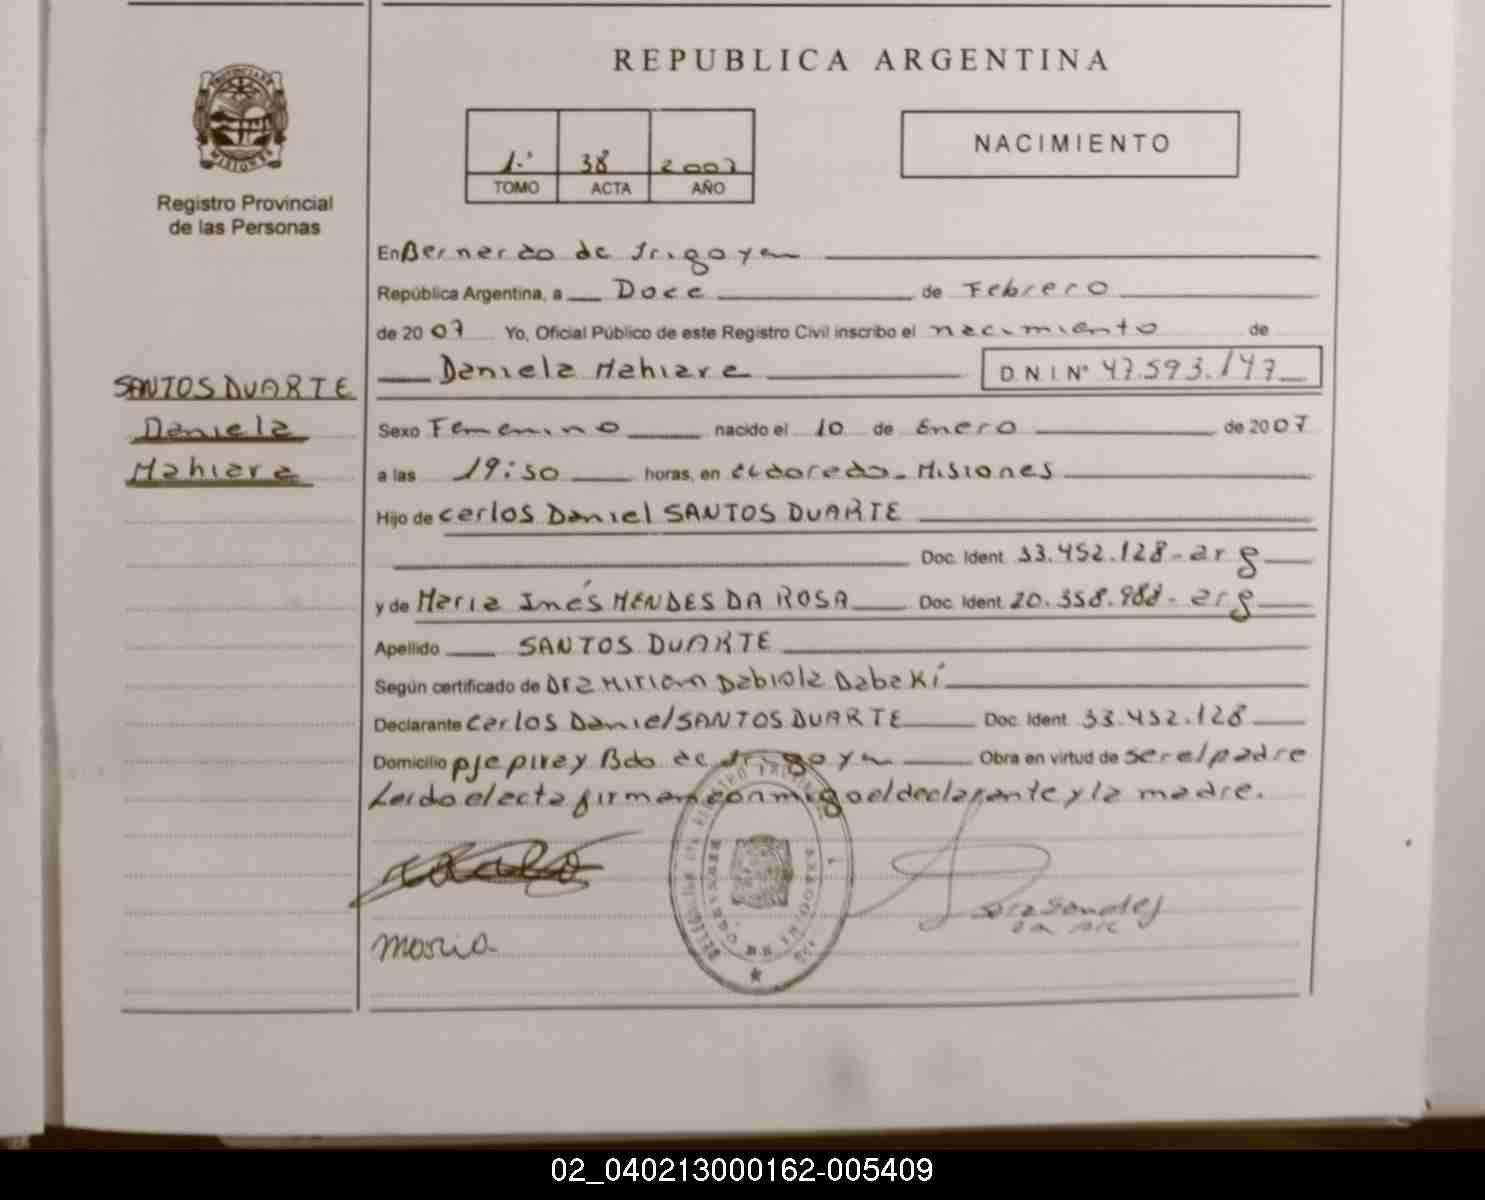 REPUBLICA ARGENTINA
PROVINCIA DE
MISIONES
Registro Provincial
de las Personas
1.º 38 2007
TOMO ACTA AÑO
NACIMIENTO
En Bernardo de Irigoyen
República Argentina, a Doce de Febrero
de 2007 Yo, Oficial Público de este Registro Civil inscribo el nacimiento de
Daniela Mahiara D.N.I. Nº 47.593.147
SANTOS DUARTE
Daniela
Mahiara
Sexo Femenino nacido el 10 de Enero de 2007
a las 19:50 horas, en eldorado - Misiones
Hijo de Carlos Daniel SANTOS DUARTE
Doc. Ident. 33.452.128 - arg
y de Maria Inés MENDES DA ROSA Doc. Ident. 20.358.988 - arg
Apellido SANTOS DUARTE
Según certificado de Dra Miriam Dabekí
Declarante Carlos Daniel SANTOS DUARTE Doc. Ident. 33.452.128
Domicilio pje piray Bdo de Irigoyen Obra en virtud de ser el padre
Leido el acta firman conmigo el declarante y la madre.
maria
02_040213000162-005409